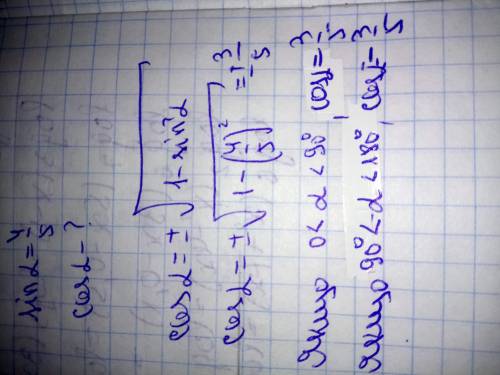 sin α = 4/5
cos α - ?
cos α = ± √(1 - sin² α)
cos α = ± √(1 - (4/5)²) = ± 3/5
Якщо 0 < α < 90°, cos α = 3/5
Якщо 90° < α < 180°, cos α = - 3/5